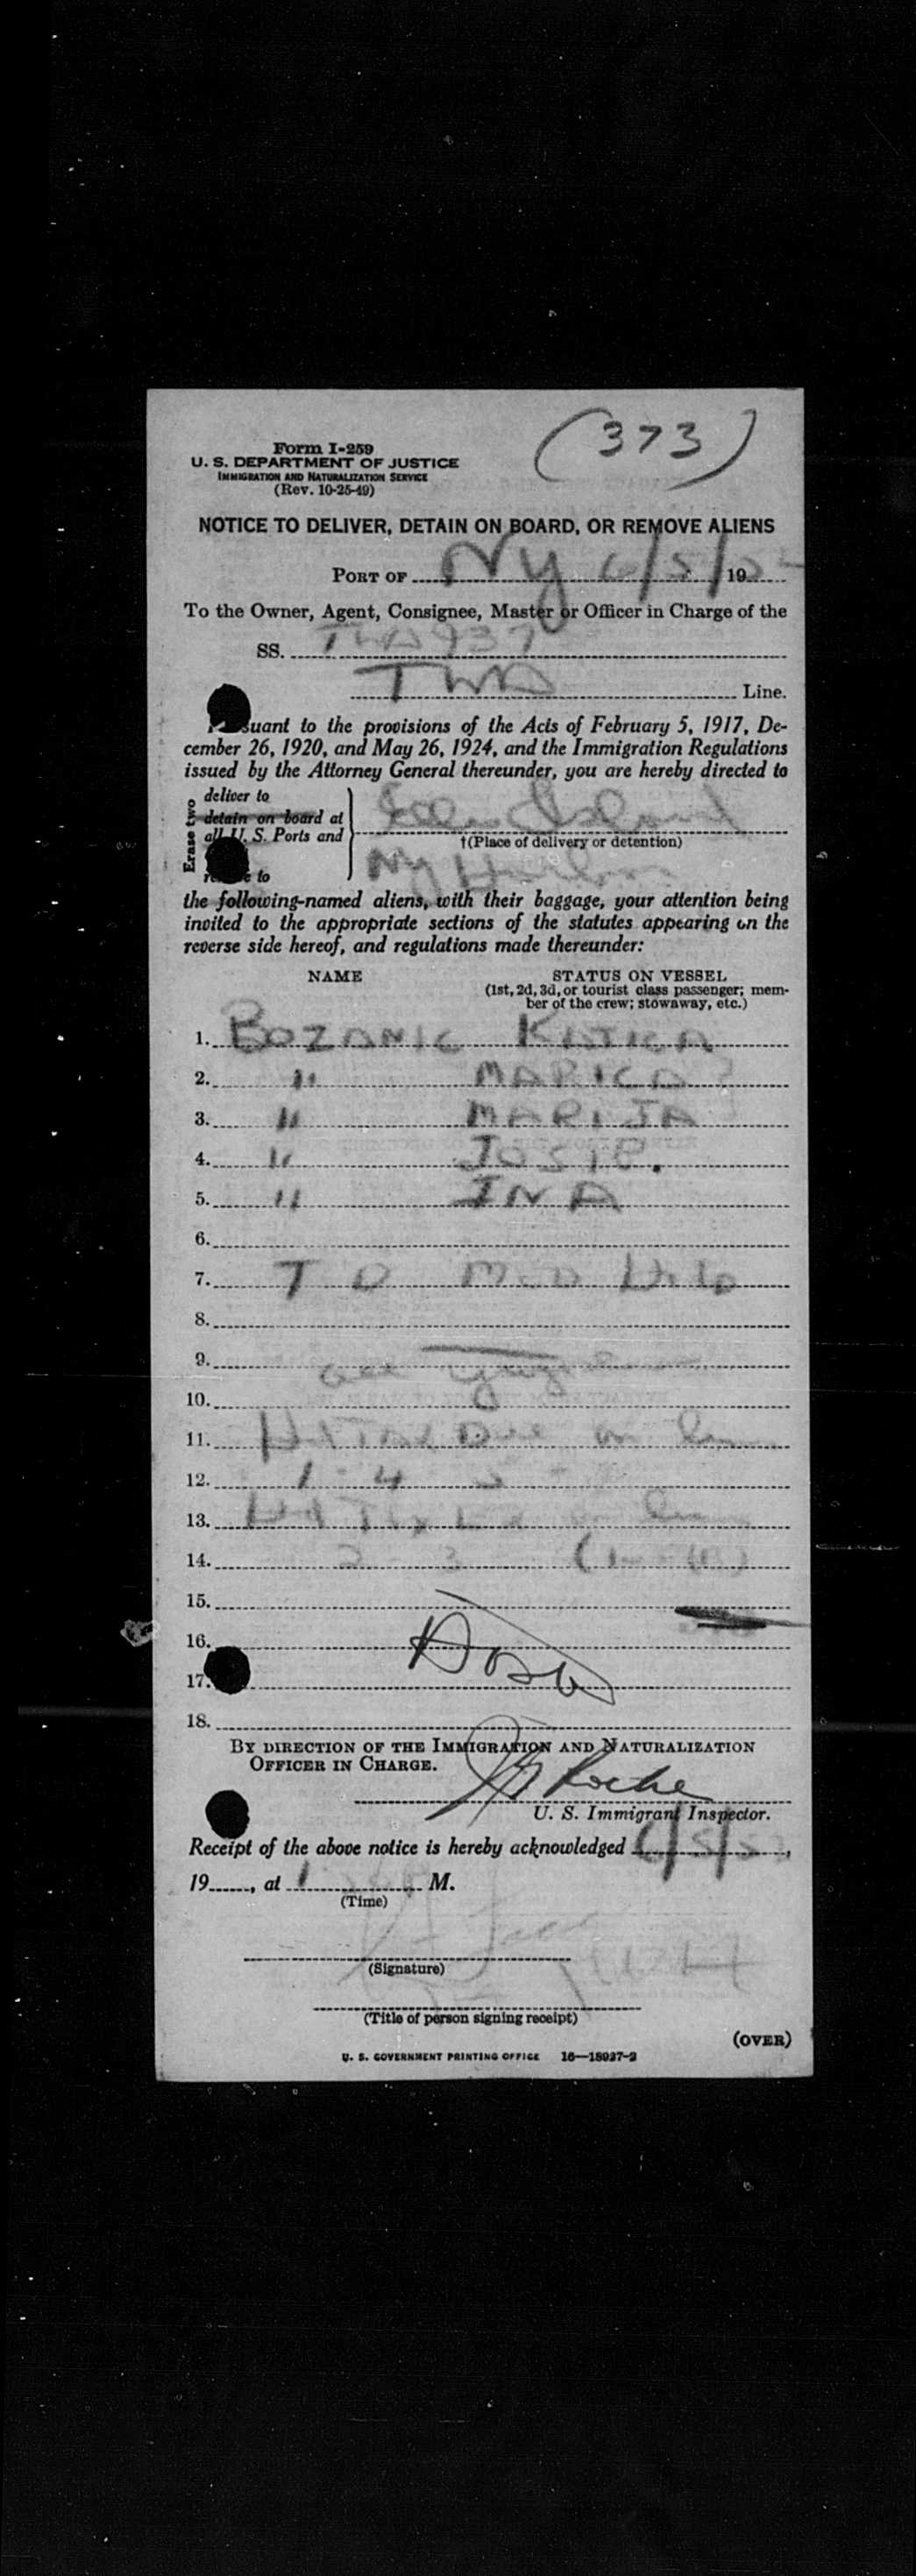 (373)
Form I-259
U. S. DEPARTMENT OF JUSTICE
IMMIGRATION AND NATURALIZATION SERVICE
(Rev. 10-25-49)
NOTICE TO DELIVER, DETAIN ON BOARD, OR REMOVE ALIENS
PORT OF NY 6/5/52 19
To the Owner, Agent, Consignee, Master or Officer in Charge of the
SS. TWA 937
TWA Line.
suant to the provisions of the Acts of February 5, 1917, De-
cember 26, 1920, and May 26, 1924, and the Immigration Regulations
issued by the Attorney General thereunder, you are hereby directed to
Erase two
deliver to
detain on board at
all U. S. Ports and
to
Ellis Island
†(Place of delivery or detention)
NY Harbor
the following-named aliens, with their baggage, your attention being
invited to the appropriate sections of the statutes appearing on the
reverse side hereof, and regulations made thereunder:
NAME STATUS ON VESSEL
(1st, 2d, 3d, or tourist class passenger; mem-
ber of the crew; stowaway, etc.)
1. BOZANIC
2. " MARICA
3. " MARIJA
4. " JOSIP.
5. " INA
6.
7. T D
8.
9. all
10.
11. Due on
12. 1 - 4
13.
14. 2 - 3
15.
16.
17.
18.
BY DIRECTION OF THE IMMIGRATION AND NATURALIZATION
OFFICER IN CHARGE.
Roche
U. S. Immigrant Inspector.
Receipt of the above notice is hereby acknowledged 6/5/52,
19, at 1 M.
(Time)
(Signature)
(Title of person signing receipt)
(OVER)
U. S. GOVERNMENT PRINTING OFFICE 16—18937-2